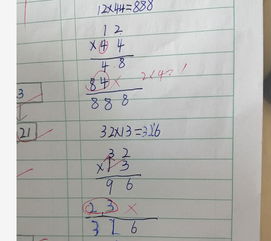 12×44=888
1 2
×4 4
4 8
8 4 ×
8 8 8
3
21
32×13=316
3 2
×1 3
9 6
2 3 ×
3 1 6